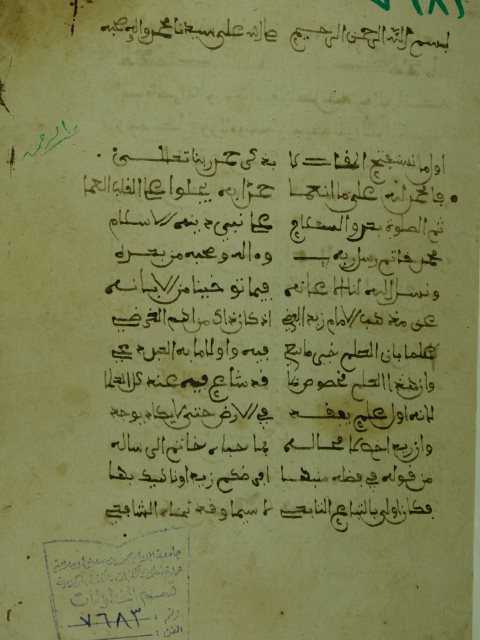 بسم الله الرحمن الرحيم صلى الله على سيدنا محمد واله وصحبه
اول ما نستفتح المقالا بذكر حمد ربنا تعالى
فالحمد لله على ما انعما حمدا به يجلوا عن القلب العما
ثم الصلوة بعد والسلام على نبي دينه الاسلام
محمد خاتم رسل ربه واله وصحبه من بعده
ونسئل الله لنا الاعانه فيما توخينا من الابانه
عن مذهب الامام زيد الفرضي اذ كان ذاك من اهم الغرض
علما بان العلم خير ما سعي فيه واولى ما له العبد دعي
وان هذا العلم مخصوص بما قد شاع فيه عند كل العلما
بانه اول علم يفقد في الارض حتى لا يكاد يوجد
وان زيدا خص لا محاله بما حباه خاتم الرساله
من قوله في فضله منبها افرضكم زيد وناهيك بها
فكان اولى باتباع التابعي لا سيما وقد نحاه الشافعي
قسم المخطوطات
الرقم: ٧٦٨٣